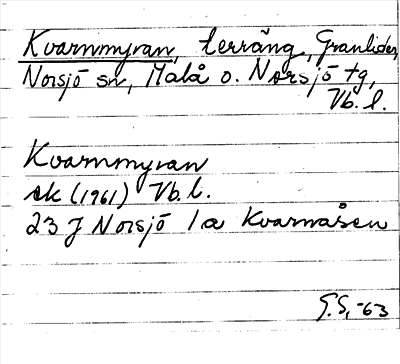 Kvarnmyran, terräng, Granliden,
Norsjö sn, Malå o. Norsjö tg,
Vb. l.
Kvarnmyran
ek (1961) Vb. l.
23 J Norsjö 1a Kvarnåsen
G.S, -63